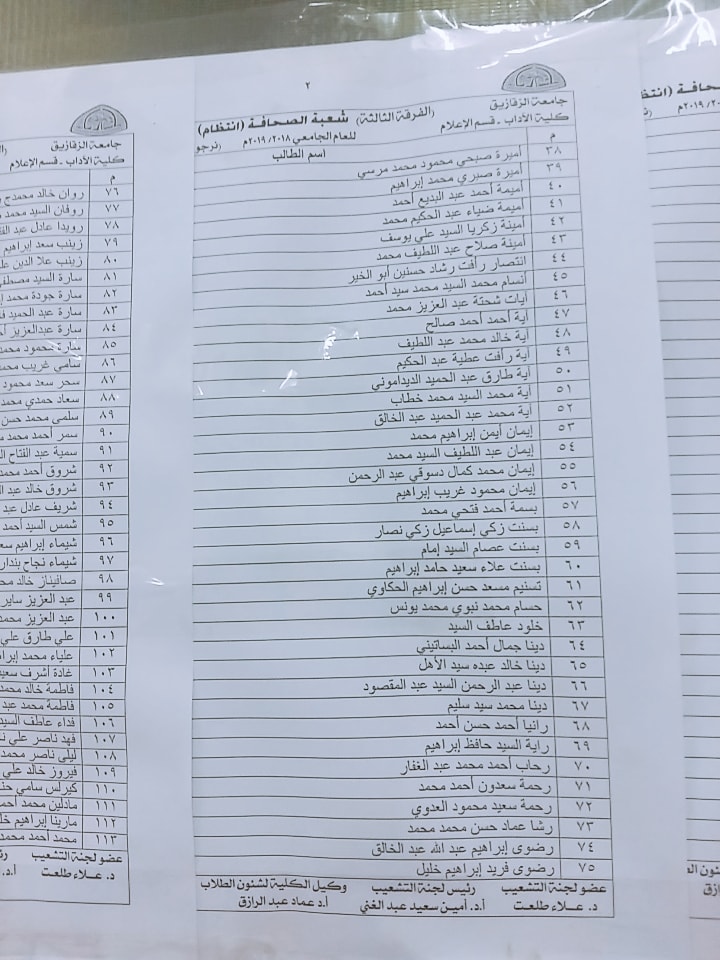 ٢
جامعة الزقازيق
كلية الآداب - قسم الإعلام
(الفرقة الثالثة) شعبة الصحافة (انتظام)
للعام الجامعي ٢٠١٨/ ٢٠١٩م
م اسم الطالب
٣٨ أميرة صبحي محمود محمد مرسي
٣٩ أميرة صبري محمد إبراهيم
٤٠ أميمة أحمد عبد البديع أحمد
٤١ أميمة ضياء عبد الحكيم محمد
٤٢ أمينة زكريا السيد علي يوسف
٤٣ أمينة صلاح عبد اللطيف محمد
٤٤ انتصار رأفت رشاد حسنين أبو الخير
٤٥ أنسام محمد السيد محمد سيد أحمد
٤٦ آيات شحتة عبد العزيز محمد
٤٧ آية أحمد أحمد صالح
٤٨ آية خالد محمد عبد اللطيف
٤٩ آية رأفت عطية عبد الحكيم
٥٠ آية طارق عبد الحميد الديداموني
٥١ آية محمد السيد محمد خطاب
٥٢ آية محمد عبد الحميد عبد الخالق
٥٣ إيمان أيمن إبراهيم محمد
٥٤ إيمان عبد اللطيف السيد محمد
٥٥ إيمان محمد كمال دسوقي عبد الرحمن
٥٦ إيمان محمود غريب إبراهيم
٥٧ بسمة أحمد فتحي محمد
٥٨ بسنت زكي إسماعيل زكي نصار
٥٩ بسنت عصام السيد إمام
٦٠ بسنت علاء سعيد حامد إبراهيم
٦١ تسنيم مسعد حسن إبراهيم الحكاوي
٦٢ حسام محمد نبوي محمد يونس
٦٣ خلود عاطف السيد
٦٤ دينا جمال أحمد البساتيني
٦٥ دينا خالد عبده سيد الأهل
٦٦ دينا عبد الرحمن السيد عبد المقصود
٦٧ دينا محمد سيد سليم
٦٨ رانيا أحمد حسن أحمد
٦٩ راية السيد حافظ إبراهيم
٧٠ رحاب أحمد محمد عبد الغفار
٧١ رحمة سعدون أحمد محمد
٧٢ رحمة سعيد محمود العدوي
٧٣ رشا عماد حسن محمد محمد
٧٤ رضوى إبراهيم عبد الله عبد الخالق
٧٥ رضوى فريد إبراهيم خليل
عضو لجنة التشعيب رئيس لجنة التشعيب وكيل الكلية لشئون الطلاب
د. علاء طلعت أ.د. أمين سعيد عبد الغني أ.د عماد عبد الرازق
جامعة الزقازيق
كلية الآداب - قسم الإعلام
م
٧٦ روان خالد محمدج
٧٧ روفان السيد محمد
٧٨ رويدا عادل عبد
٧٩ زينب سعد إبراهيم
٨٠ زينب علا الدين
٨١ سارة السيد مصطفى
٨٢ سارة جودة محمد
٨٣ سارة عبد الحميد
٨٤ سارة عبدالعزيز
٨٥ سارة محمود محمد
٨٦ سامي غريب محمد
٨٧ سحر سعد محمود
٨٨ سعاد حمدي محمد
٨٩ سلمى محمد حسن
٩٠ سمر أحمد محمد
٩١ سمية عبد الفتاح
٩٢ شروق أحمد محمد
٩٣ شروق خالد عبد
٩٤ شريف عادل عبد
٩٥ شمس السيد أحمد
٩٦ شيماء إبراهيم
٩٧ شيماء نجاح
٩٨ صافيناز خالد
٩٩ عبد العزيز ساير
١٠٠ عبد العزيز محمد
١٠١ علي طارق علي
١٠٢ علياء محمد
١٠٣ غادة أشرف
١٠٤ فاطمة خالد محمد
١٠٥ فاطمة محمد عبد
١٠٦ فداء عاطف السيد
١٠٧ فهد ناصر علي
١٠٨ ليلى ناصر محمد
١٠٩ فيروز خالد علي
١١٠ كيرلس سامي
١١١ مادلين محمد
١١٢ مارينا إبراهيم
١١٣ محمد أحمد محمد
عضو لجنة التشعيب
د. علاء طلعت أ.د.